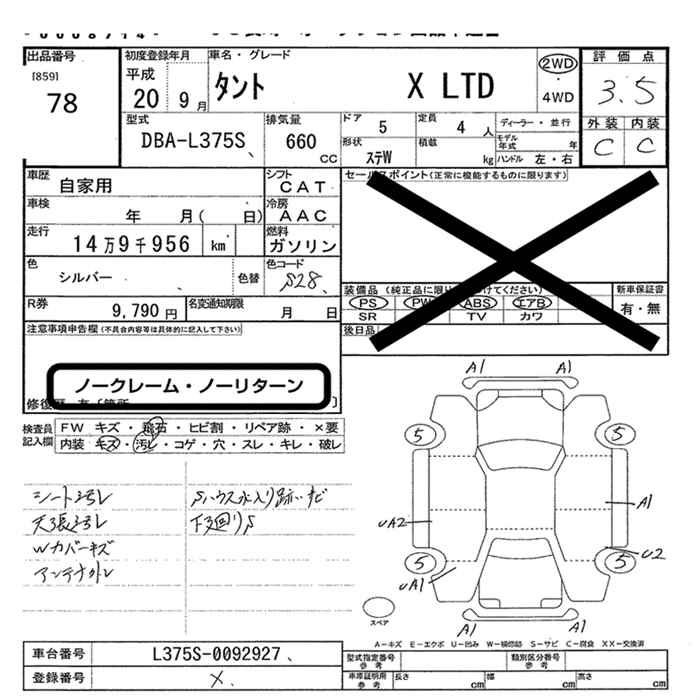 出品番号
[859]
78
初度登録年月
平成
20 9月
車名・グレード
タント X LTD
2WD
・
4WD
評価点
3.5
外装 内装
C C
型式
DBA-L375S
排気量
660
CC
ドア
5
定員
4人
ディーラー・並行
モデル年式 年
形状
ステW
積載
kg
ハンドル 左・右
車歴
自家用
シフト
CAT
車検
年 月( 日)
冷房
AAC
走行
14万9千956 km
燃料
ガソリン
色
シルバー
色替
色コード
S28
R券
9,790円
名変通知期限
月 日
セールスポイント(正常に機能するものに限ります)
装備品(純正品に限り
けてください)
新車保証書
有・無
PS PW ABS エアB
SR TV カワ
後日品
注意事項申告欄(不具合内容等は具体的に記入して下さい)
ノークレーム・ノーリターン
修復歴
検査員記入欄
FW キズ・飛石・ヒビ割・リペア跡・×要
内装 キズ・汚レ・コゲ・穴・スレ・キレ・破レ
シート汚レ
天張汚レ
Wカバーキズ
アンテナカレ
Sハウス水入り跡いサビ
下廻りS
A1 A1
5 5
A1
UA2
U2
5 5
UA1
A1 A1
スペア
A-キズ E-エクボ U-凹み W-補修跡 S-サビ C-腐食 XX-交換済
車台番号
L375S-0092927
登録番号
×
型式指定番号
参考
類別区分番号
参考
車庫証明用
参考
長さ cm
幅 cm
高さ cm